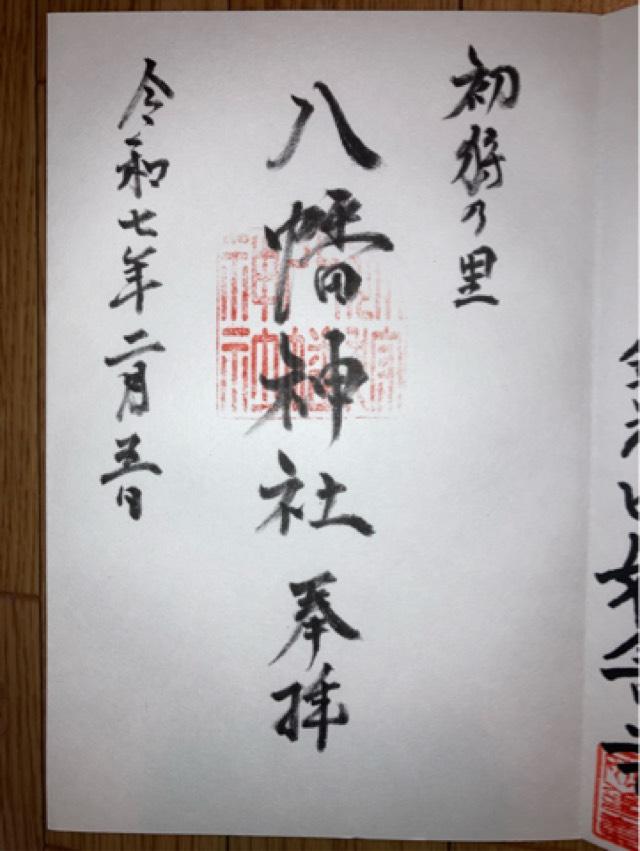 初狩乃里
八幡神社
奉拝
令和七年二月五日